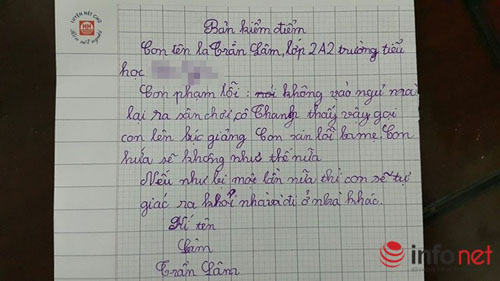 LUYỆN NÉT CHỮ
Rèn nết người
Bản kiểm điểm
Con tên là Trần Lâm, lớp 2A2 trường tiểu
học
Con phạm lỗi : không vào ngủ mà
lại ra sân chơi cô Thanh thấy vậy gọi
con lên bục giảng Con xin lỗi ba mẹ. Con
hứa sẽ không như thế nữa
Nếu như bị một lần nữa thì con sẽ tự
giác ra khổi nhà và đi ở nhà khác.
Kí tên
Lâm
Trần Lâm
infonet